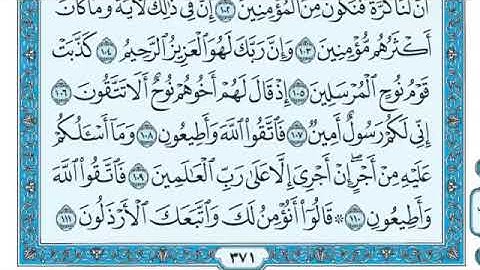 أَنَّ لَنَا كَرَّةً فَنَكُونَ مِنَ ٱلْمُؤْمِنِينَ ١٠٢ إِنَّ فِي ذَٰلِكَ لَأٓيَةً وَمَا كَانَ
أَكْثَرُهُم مُّؤْمِنِينَ ١٠٣ وَإِنَّ رَبَّكَ لَهُوَ ٱلْعَزِيزُ ٱلرَّحِيمُ ١٠٤ كَذَّبَتْ
قَوْمُ نُوحٍ ٱلْمُرْسَلِينَ ١٠٥ إِذْ قَالَ لَهُمْ أَخُوهُمْ نُوحٌ أَلَا تَتَّقُونَ ١٠٦
إِنِّي لَكُمْ رَسُولٌ أَمِينٌ ١٠٧ فَٱتَّقُوا۟ ٱللَّهَ وَأَطِيعُونِ ١٠٨ وَمَآ أَسْـَٔلُكُمْ
عَلَيْهِ مِنْ أَجْرٍ ۖ إِنْ أَجْرِىَ إِلَّا عَلَىٰ رَبِّ ٱلْعَـٰلَمِينَ ١٠٩ فَٱتَّقُوا۟ ٱللَّهَ
وَأَطِيعُونِ ١١٠ ۞ قَالُوٓا۟ أَنُؤْمِنُ لَكَ وَٱتَّبَعَكَ ٱلْأَرْذَلُونَ ١١١
٣٧١